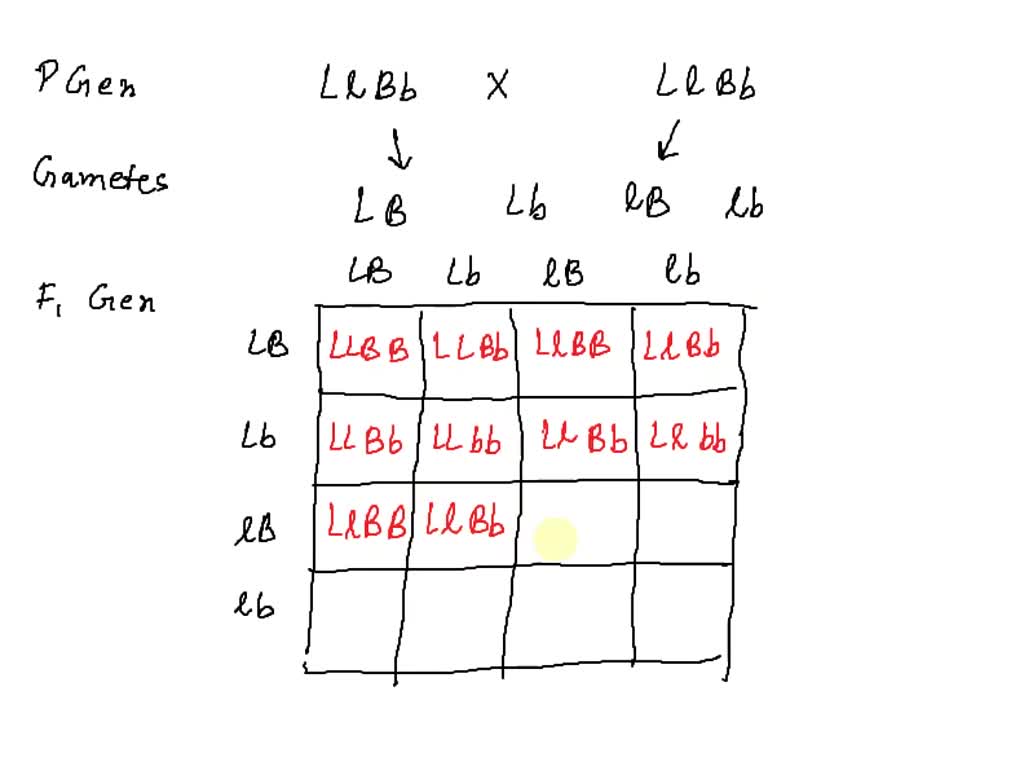 P Gen LlBb X LlBb
Gametes
LB Lb lB lb
LB Lb lB lb
F1 Gen
LB LLBB LLBb LlBB LlBb
Lb LLBb LLbb LlBb Llbb
lB LlBB LlBb
lb